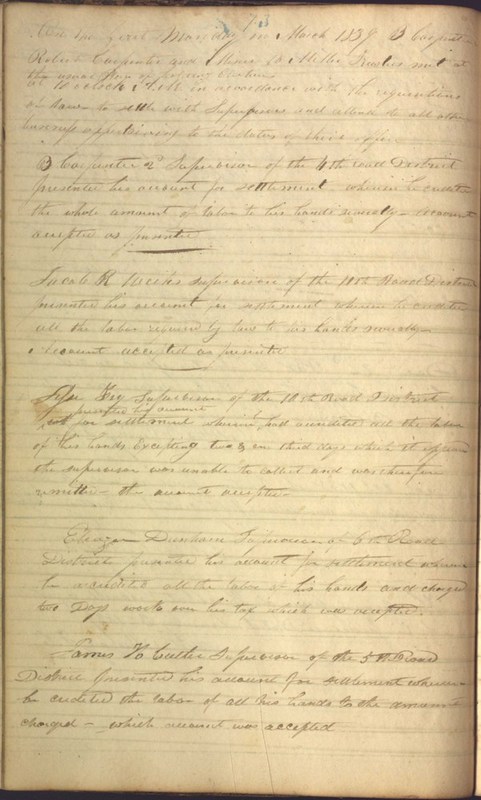 On the first Monday in March 1839 B Carpenter
Robert Carpenter and Miller Trustees met at
the
at 10 oclock A.M. in accordance with the requisitions
of law to settle with Supervisors and attend to all other
business appertaining to the duties of their office
B Carpenter 2d Supervisor of the 4th Road District
presented his account for settlement wherein he credited
the whole amount of labor to his hands severally – account
accepted as presented
Jacob R Weeks Supervisor of the 11th Road District
presented his account for settlement wherein he credited
all the labor required by law to his hands severally –
Account accepted as presented
Supervisor of the 10th Road District
presented his account
for settlement wherein had accredited all the labor
of his hands Excepting two & one third days which it appears
the supervisor was unable to collect and was therefore
remitted – the account accepted –
Eleazer Durham Supervisor of 6th Road
District presented his account for settlement wherein
he accredited all the labor of his hands and charged
two Days work over his tax which was accepted.
James H Cutler Supervisor of the 5th Road
District presented his account for settlement wherein
he credited the labor of all his hands to the amount
charged – which account was accepted